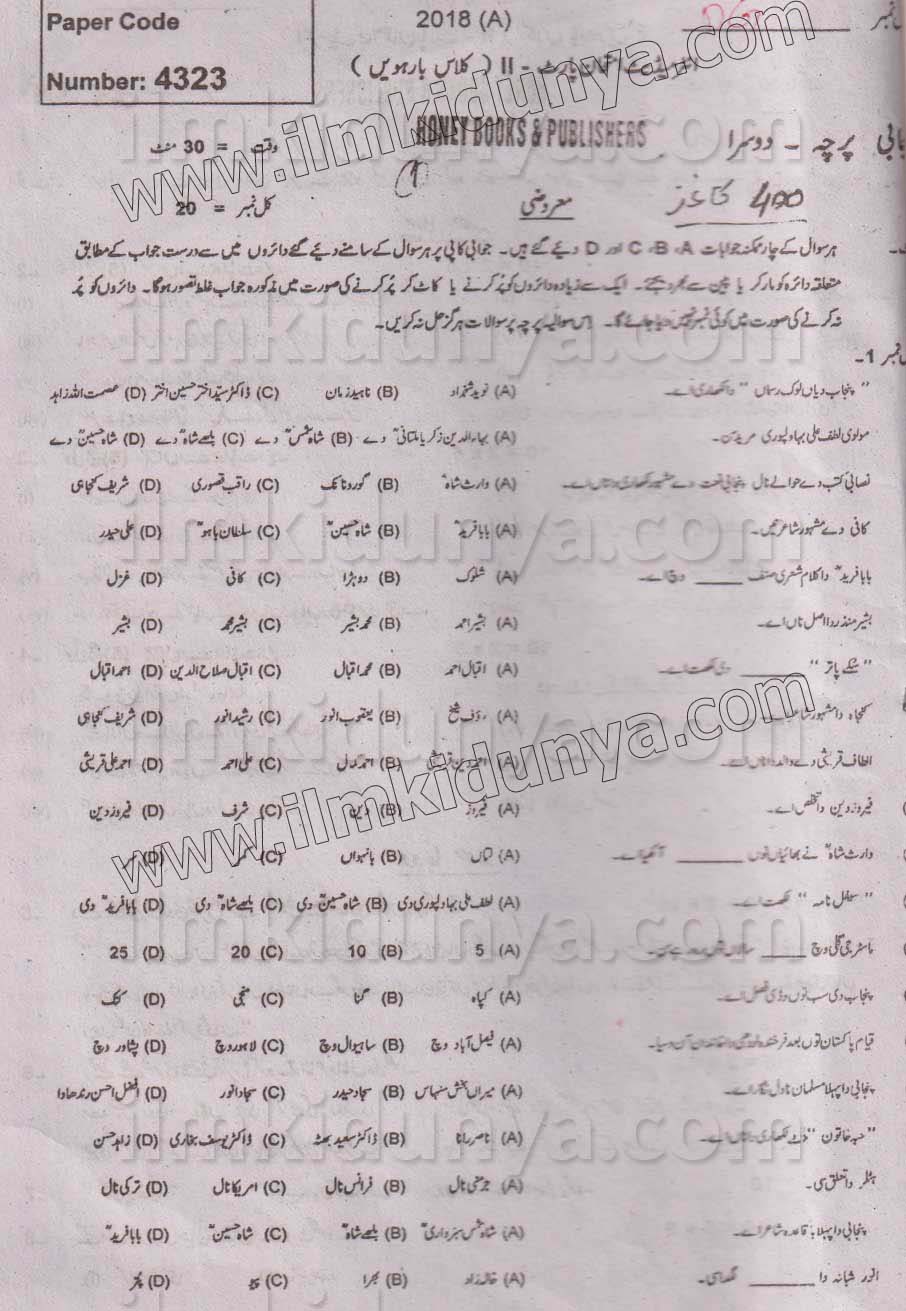 Paper Code
Number: 4323
2018 (A)
پارٹ - II ( کلاس بارہویں )
HONEY BOOKS & PUBLISHERS
پرچہ - دوسرا
وقت = 30 منٹ
معروضی
کل نمبر = 20
ہر سوال کے چار ممکنہ جوابات A، B، C اور D دیئے گئے ہیں۔ جوابی کاپی پر ہر سوال کے سامنے دیئے گئے دائروں میں سے درست جواب کے مطابق
متعلقہ دائرہ کو مارکر یا پین سے بھر دیجئے۔ ایک سے زیادہ دائروں کو پُر کرنے یا کاٹ کر پُر کرنے کی صورت میں مذکورہ جواب غلط تصور ہوگا۔ دائروں کو پُر
نہ کرنے کی صورت میں کوئی نمبر نہیں دیا جائے گا۔ اس سوالیہ پرچہ پر سوالات ہرگز حل نہ کریں۔
نمبر 1-
"پنجاب دیاں لوک رسماں" دا لکھاری اے۔ (A) نوید شہزاد (B) ناہید زمان (C) ڈاکٹر سید اختر حسین اختر (D) عصمت اللہ زاہد
مولوی لطف علی بہاولپوری مرید سن۔ (A) بہاءالدین زکریا ملتانیؒ دے (B) شاہ شمسؒ دے (C) بلھے شاہؒ دے (D) شاہ حسینؒ دے
نصابی کتب دے حوالے نال پنجابی نعت دے مشہور لکھاری دا ناں اے۔ (A) وارث شاہؒ (B) گورونانک (C) راقب قصوری (D) شریف کنجاہی
کافی دے مشہور شاعر نیں۔ (A) بابا فریدؒ (B) شاہ حسینؒ (C) سلطان باہوؒ (D) علی حیدر
بابا فریدؒ دا کلام شعری صنف ____ وچ اے۔ (A) شلوک (B) دوہڑا (C) کافی (D) غزل
بشیر منذر دا اصل ناں اے۔ (A) بشیر احمد (B) محمد بشیر (C) بشیر محمد (D) بشیر
"سُکے پتر" ____ دی لکھت اے۔ (A) اقبال احمد (B) محمد اقبال (C) اقبال صلاح الدین (D) احمد اقبال
کنجاہ دا مشہور شاعر (A) رؤف شیخ (B) یعقوب انور (C) رشید انور (D) شریف کنجاہی
الطاف قریشی دے والد دا ناں اے۔ (A) احمد دین قریشی (B) احمد کمال (C) علی احمد (D) احمد علی قریشی
فیروز دین دا تخلص اے۔ (A) فیروز (B) دین (C) شرف (D) فیروز دین
وارث شاہؒ نے بھائیاں نوں ____ آکھیا اے۔ (A) لتاں (B) بانہواں (C) (D)
"سیفل نامہ" لکھت اے۔ (A) لطف علی بہاولپوری دی (B) شاہ حسینؒ دی (C) بلھے شاہؒ دی (D) بابا فریدؒ دی
ماسٹر جی گلی وچ ____ سالاں توں رہ رہے سن۔ (A) 5 (B) 10 (C) 20 (D) 25
پنجاب دی سب توں وڈی فصل اے۔ (A) کپاہ (B) گنا (C) منجی (D) کنک
قیام پاکستان توں بعد فرخندہ لودھی دا خاندان آن وسیا۔ (A) فیصل آباد وچ (B) ساہیوال وچ (C) لاہور وچ (D) پشاور وچ
پنجابی دا پہلا مسلمان ناول نگار اے۔ (A) میراں بخش منہاس (B) سجاد حیدر (C) سجاد انور (D) افضل احسن رندھاوا
"حبہ خاتون" دے لکھاری دا ناں اے۔ (A) ناصر رانا (B) ڈاکٹر سعید بھٹہ (C) ڈاکٹر یوسف بخاری (D) زاہد حسن
ہٹلر دا تعلق سی۔ (A) جرمنی نال (B) فرانس نال (C) امریکا نال (D) ترکی نال
پنجابی دا پہلا باقاعدہ شاعر اے۔ (A) شاہ شمس سبزواریؒ (B) بلھے شاہؒ (C) شاہ حسینؒ (D) بابا فریدؒ
انور شبانہ دا ____ لگدا سی۔ (A) خالہ زاد (B) بھرا (C) (D) پتر
www.ilmkidunya.com
www.ilmkidunya.com
ilmkidunya.com